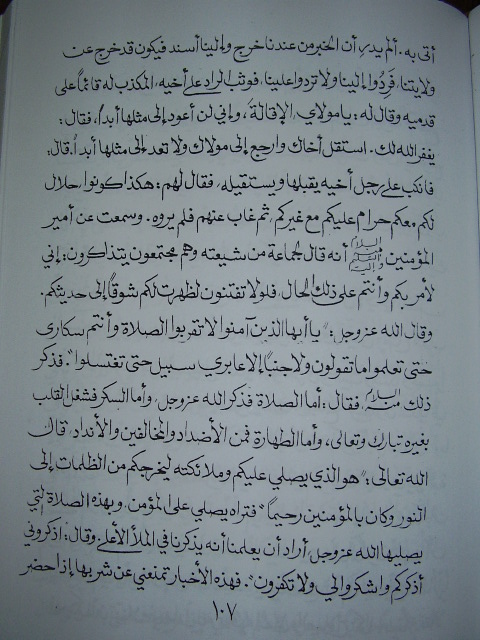 أتى به. ألم يدر أن الخبر من عندنا خرج وإلينا أسند فيكون قد خرج عن
ولايتنا، فردوا إلينا ولا تردوا علينا، فوثب الراد على أخيه، المكذب له قائماً على
قدميه وقال له: يا مولاي، الإقالة، وإني لن أعود إلى مثلها أبداً، فقال:
يغفر الله لك. استقل أخاك وارجع إلى مولاك ولا تعد إلى مثلها أبداً. قال:
فانكب على رجل أخيه يقبلها ويستقيله. فقال لهم: هكذا كونوا، حلال
لكم معكم حرام عليكم مع غيركم، ثم غاب عنهم فلم يروه. وسمعت عن أمير
المؤمنين أنه قال لجماعة من شيعته وهم مجتمعون يتذاكرون: إني
لأمر بكم وأنتم على ذلك الحال، فلولا تفتنون لظهرت لكم شوقاً إلى حديثكم.
وقال الله عز وجل: "يا أيها الذين آمنوا لا تقربوا الصلاة وأنتم سكارى
حتى تعلموا ما تقولون ولا جنباً إلا عابري سبيل حتى تغتسلوا". فذكر
ذلك منه السلام، فقال: أما الصلاة فذكر الله عز وجل، وأما السكر فشغل القلب
بغيره تبارك وتعالى، وأما الطهارة فمن الأضداد والمخالفين والأنداد. قال
الله تعالى: "هو الذي يصلي عليكم وملائكته ليخرجكم من الظلمات إلى
النور وكان بالمؤمنين رحيماً" فتراه يصلي على المؤمن. وبهذه الصلاة التي
يصليها الله عز وجل، أراد أن يعلمنا أنه يذكرنا في الملأ الأعلى وقال: اذكروني
أذكركم واشكروا لي ولا تكفرون". فهذه الأخبار تمنعني عن شربها إذا حضر
١٠٧